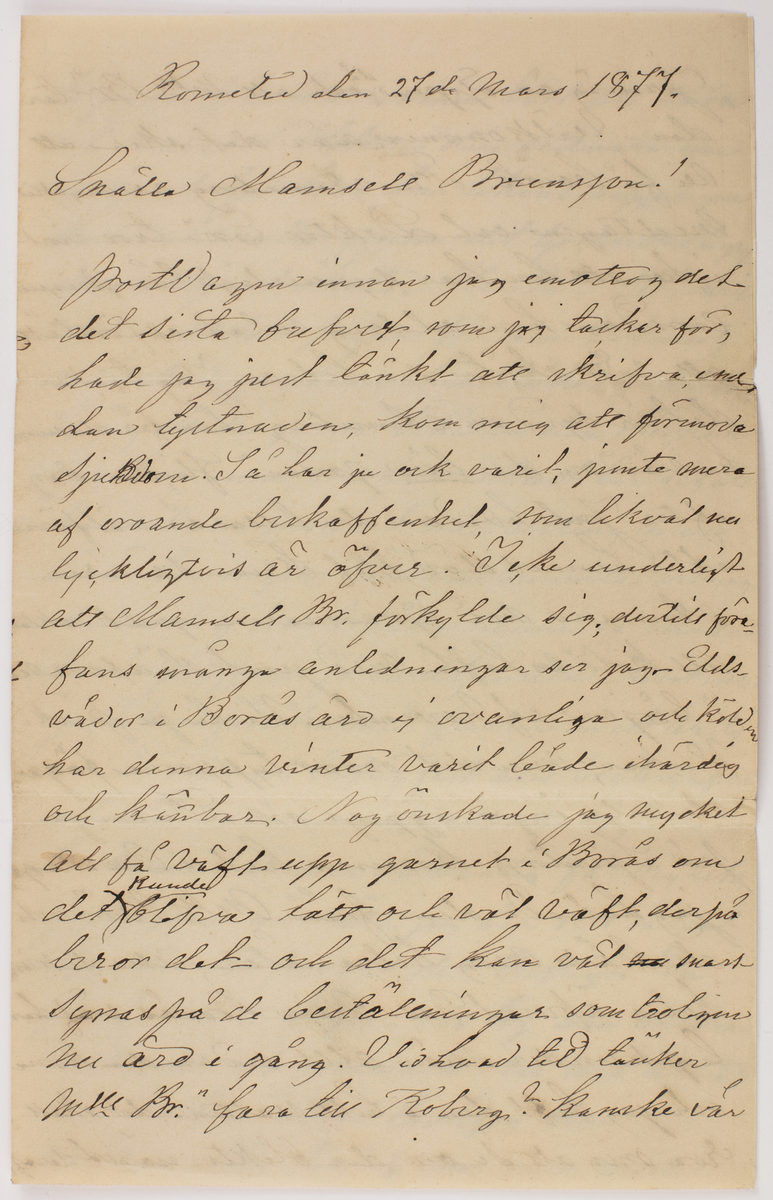 Rometed den 27de Mars 1877.
Snälla Mamsell Brunsson!
Postdagen innan jag emottog det
det sista brefvet, som jag tackar för,
hade jag just tänkt att skrifva, eme-
dan tystnaden, kom mig att förmoda
sjukdom. Så har ju ock varit, jemte mera
af oroande beskaffenhet, som likväl nu
lyckligtvis är öfver. Icke underligt
att Mamsell Br. förkylde sig; dertill före-
fans många anledningar ser jag. Elds-
vådor i Borås äro ej ovanliga och kölden
har denna vinter varit både ihärdig
och känbar. Nog önskade jag mycket
att få väft upp garnet i Borås om
det kunde blifva tätt och väl väft, derpå
beror det och det kan väl snart
synas på de beställningar som troligen
nu äro i gång. Vid hvad tid tänker
Mlle Br. fara till Koberg? kanske vår